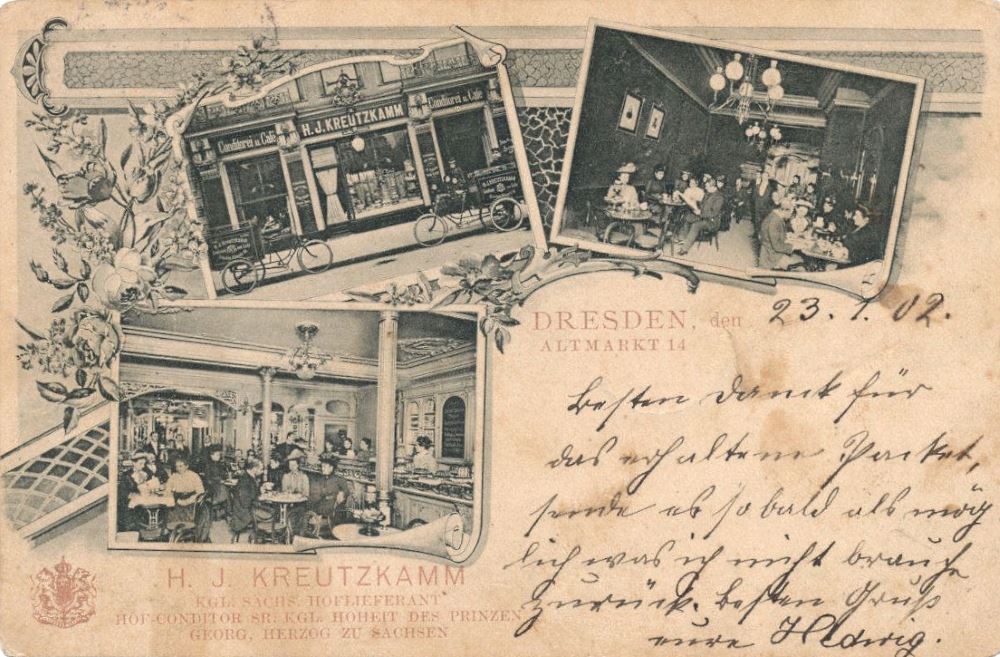 Conditorei u. Café
H. J. KREUTZKAMM
Conditorei u. Café
DRESDEN, den 23. 1. 02.
ALTMARKT 14
besten Danck für
das erhaltene Packet,
sende es so bald als mög
lich was ich nicht brauche
zurück. besten Gruß
eure Hedwig.
H. J. KREUTZKAMM
KGL. SÄCHS. HOFLIEFERANT
HOF-CONDITOR SR. KGL. HOHEIT DES PRINZEN
GEORG, HERZOG ZU SACHSEN